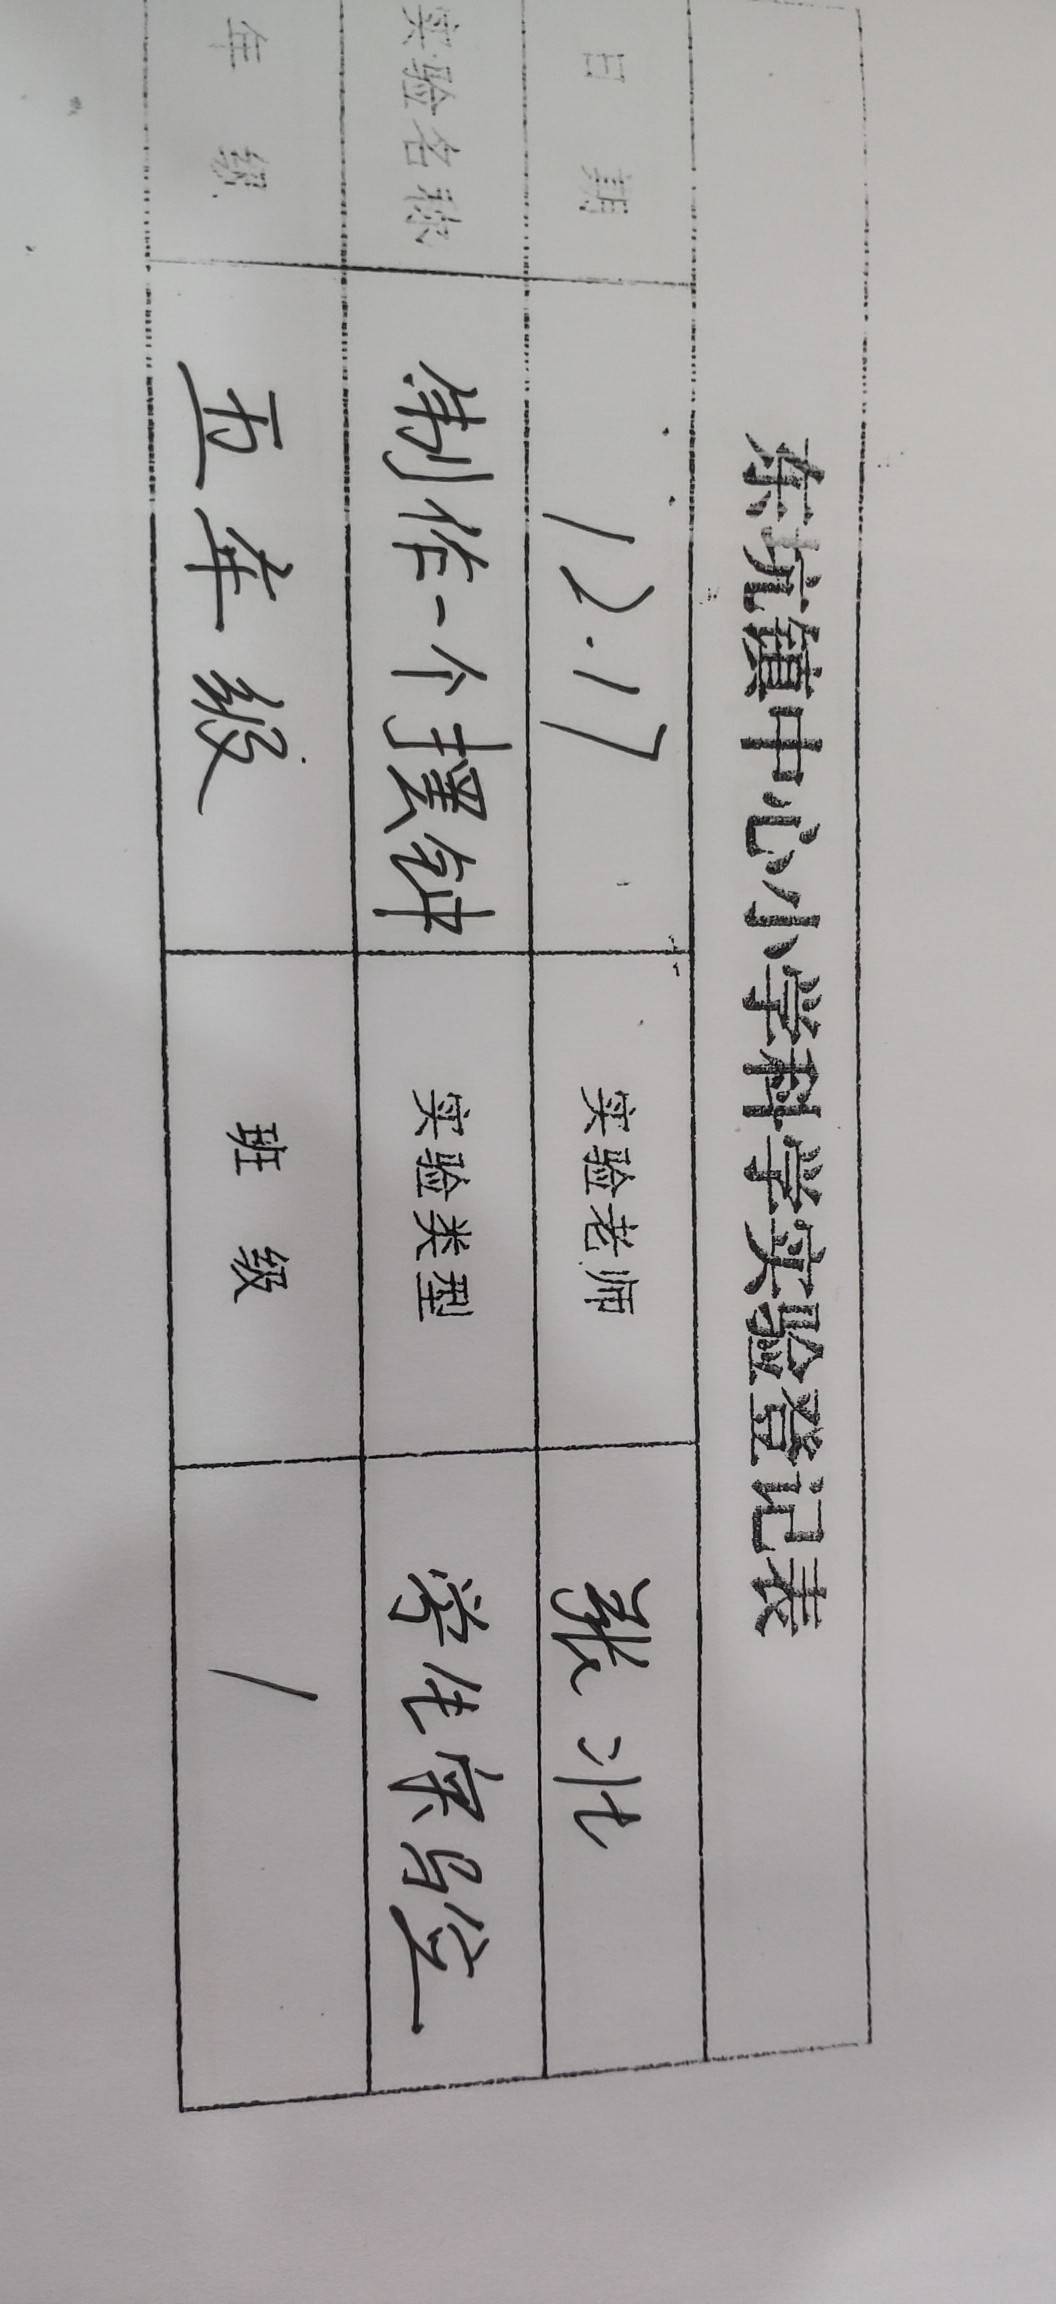 东坑镇中心小学科学实验登记表
日 期 12.17 实验老师 张北
实验名称 制作一个摆钟 实验类型 学生实验
年 级 五年级 班 级 1